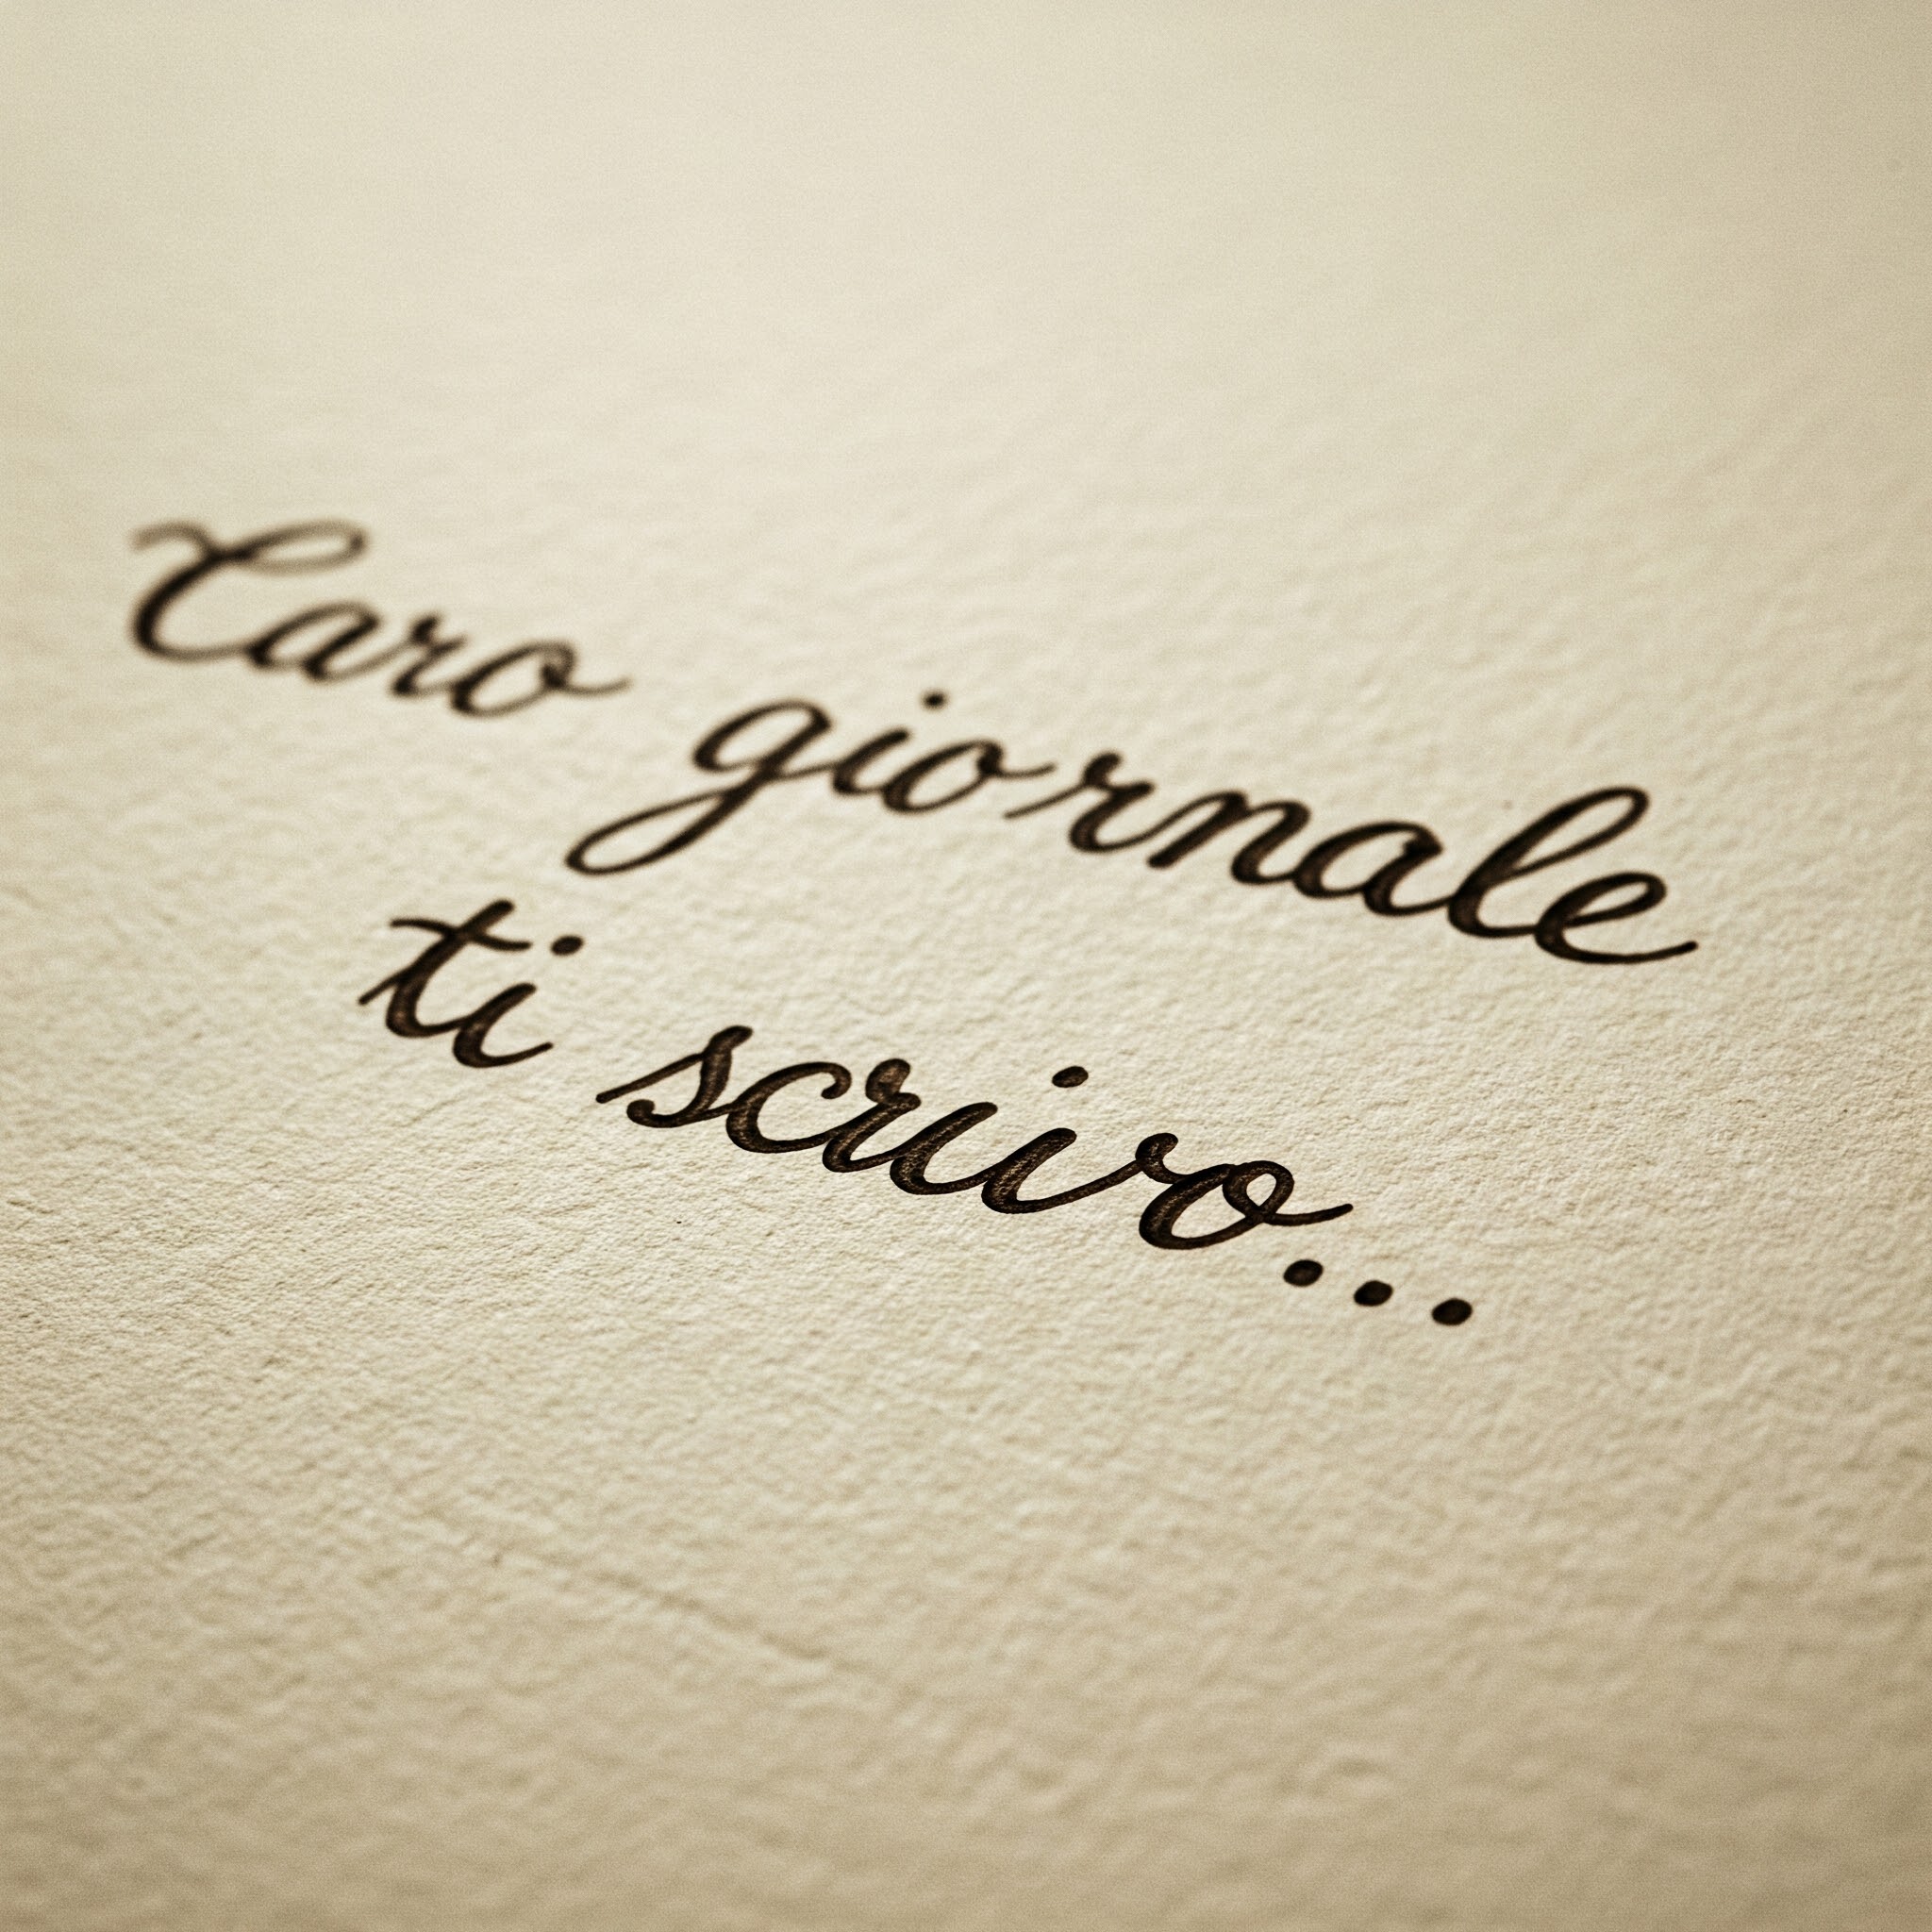 Caro giornale
ti scrivo...